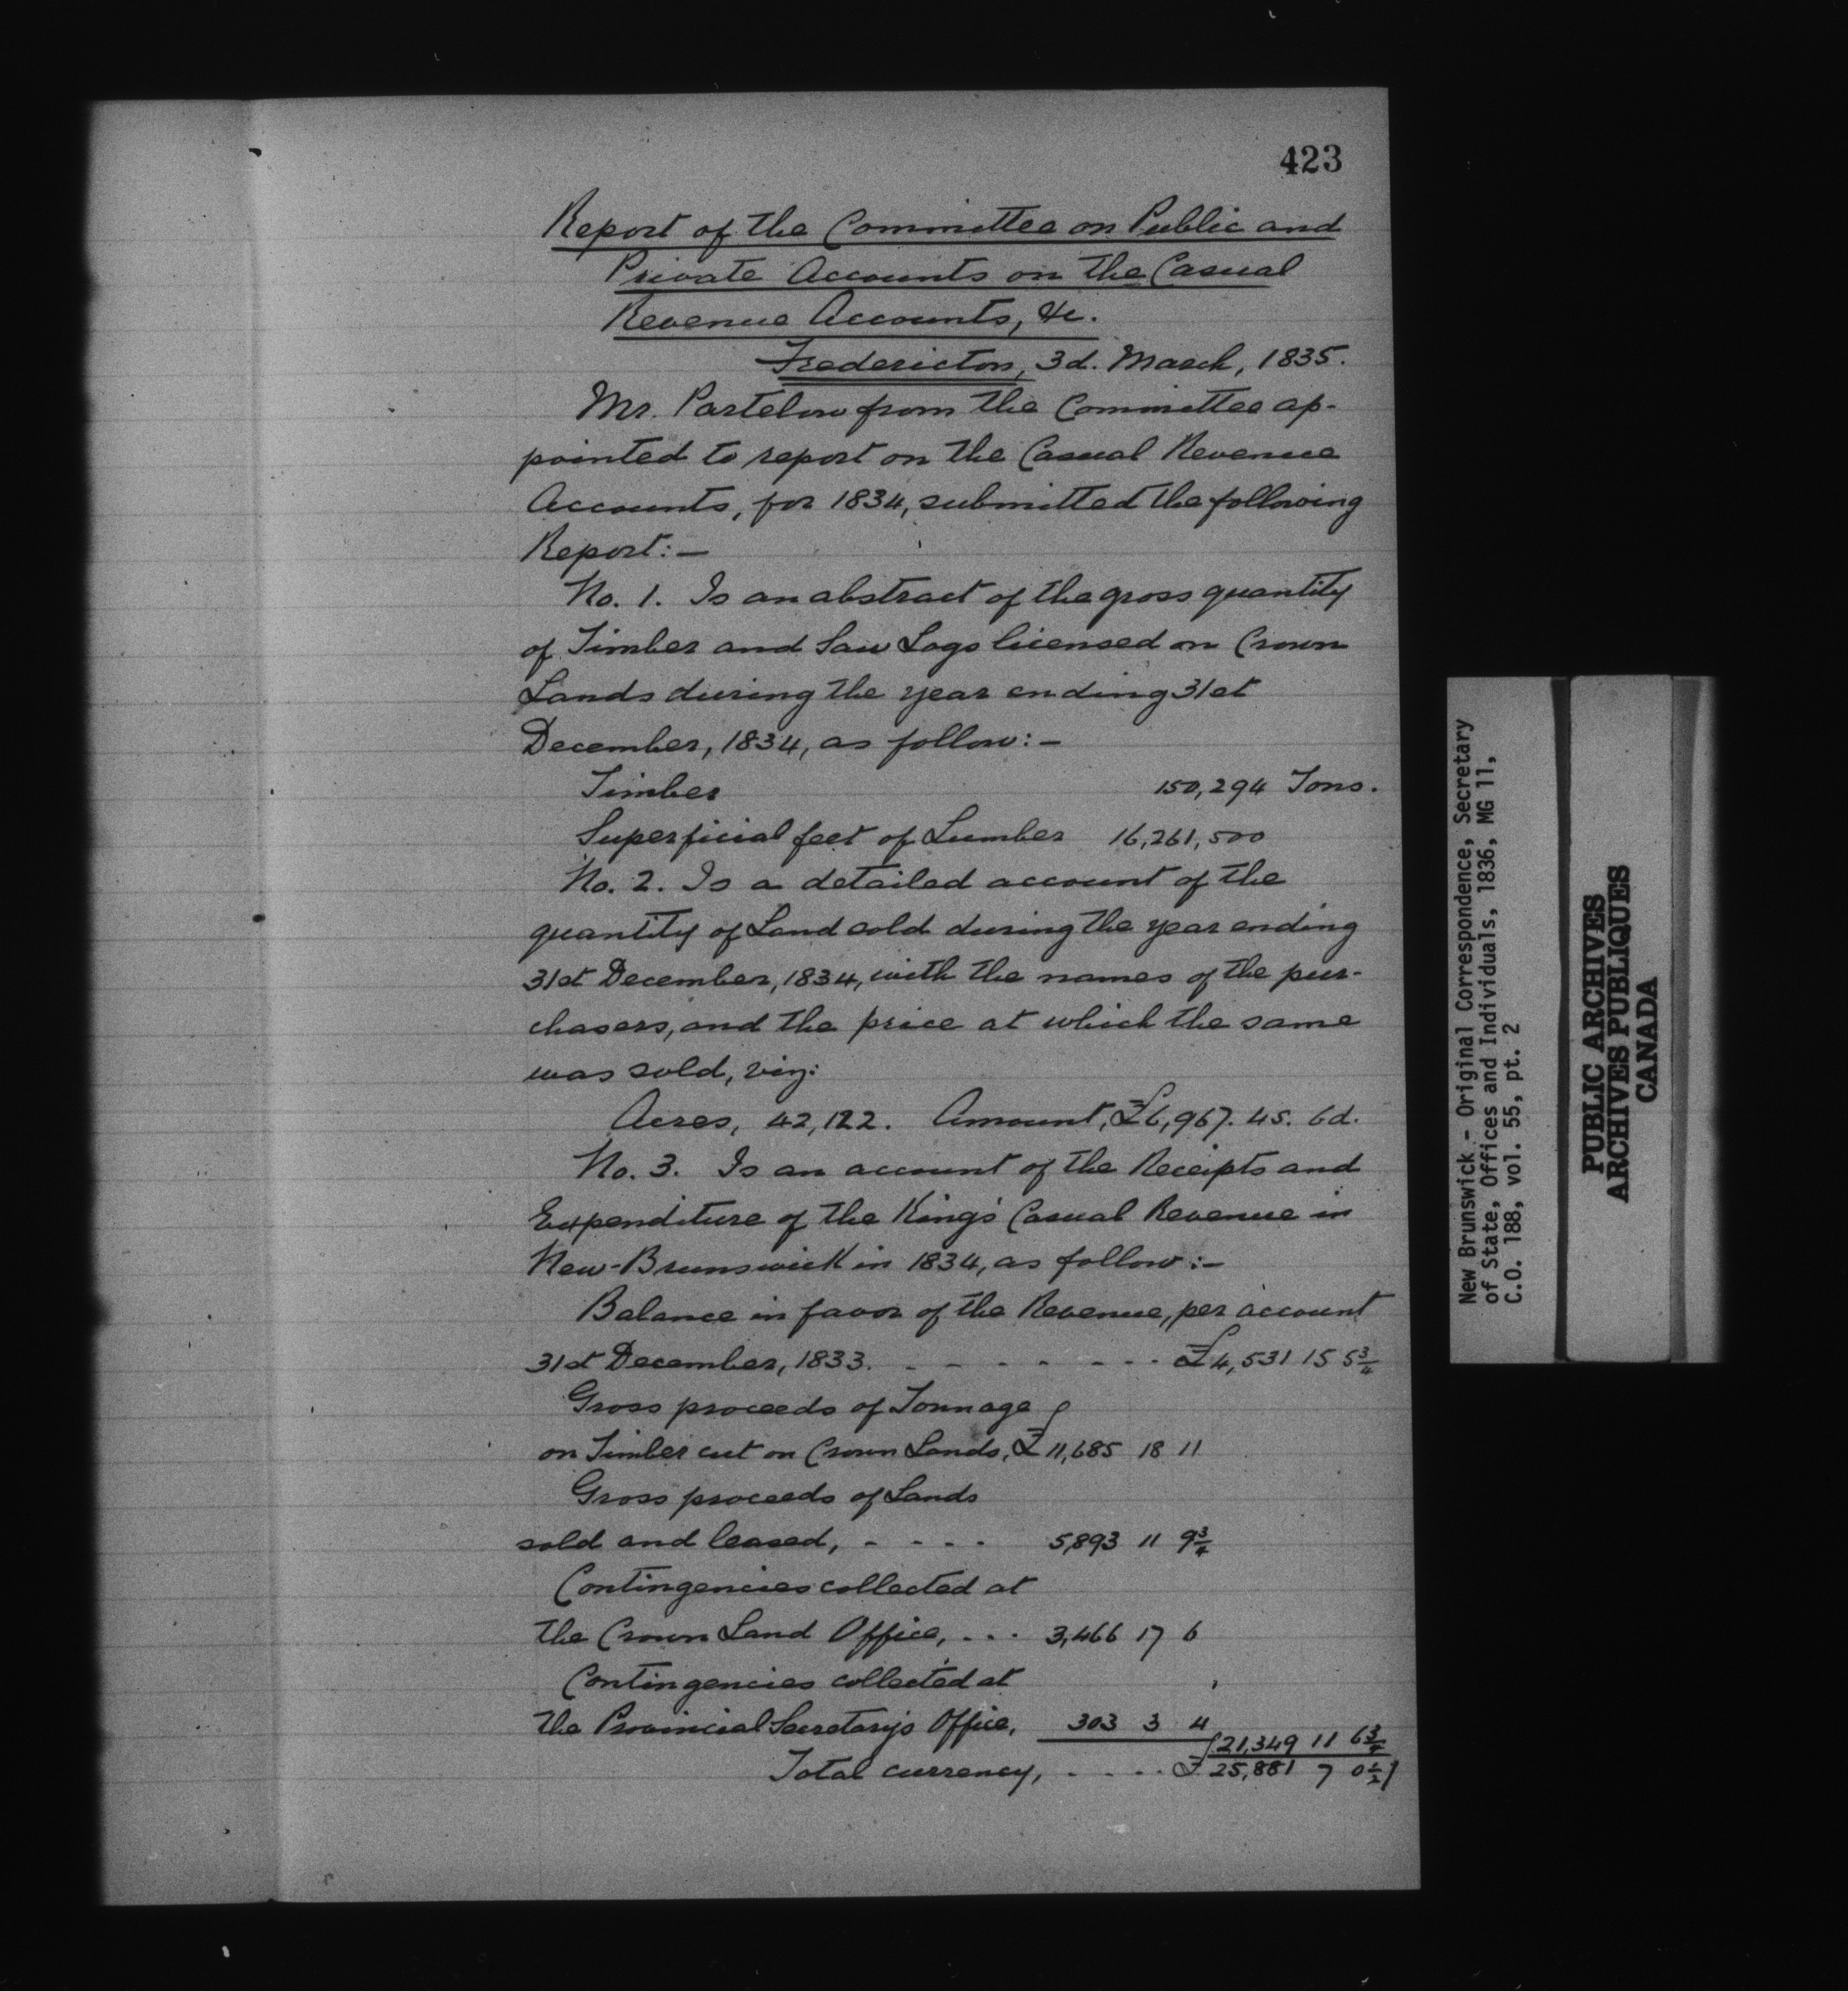 423
Report of the Committee on Public and
Private Accounts on the Casual
Revenue Accounts, &c.
Fredericton, 3d. March, 1835.
Mr. Partelow from the Committee ap-
pointed to report on the Casual Revenue
Accounts, for 1834, submitted the following
Report:—
No. 1. Is an abstract of the gross quantity
of Timber and Saw Logs licensed on Crown
Lands during the year ending 31st
December, 1834, as follow:—
Timber 150,294 Tons.
Superficial feet of Lumber 16,261,500
No. 2. Is a detailed account of the
quantity of Land sold during the year ending
31st December, 1834, with the names of the pur-
chasers, and the price at which the same
was sold, viz:
Acres, 42,122. Amount, £6,967. 4s. 6d.
No. 3. Is an account of the Receipts and
Expenditure of the King's Casual Revenue in
New-Brunswick in 1834, as follow:—
Balance in favor of the Revenue, per account
31st December, 1833. - - - - - - - £4,531 15 5¾
Gross proceeds of Tonnage
on Timber cut on Crown Lands, £11,685 18 11
Gross proceeds of Lands
sold and leased, - - - - 5,893 11 9¾
Contingencies collected at
the Crown Land Office, - - - 3,466 17 6
Contingencies collected at
the Provincial Secretary's Office, 303 3 4
21,349 11 6¾
Total currency, - - - - £25,881 7 0½
New Brunswick - Original Correspondence, Secretary
of State, Offices and Individuals, 1836, MG 11,
C.O. 188, vol. 55, pt. 2
PUBLIC ARCHIVES
ARCHIVES PUBLIQUES
CANADA